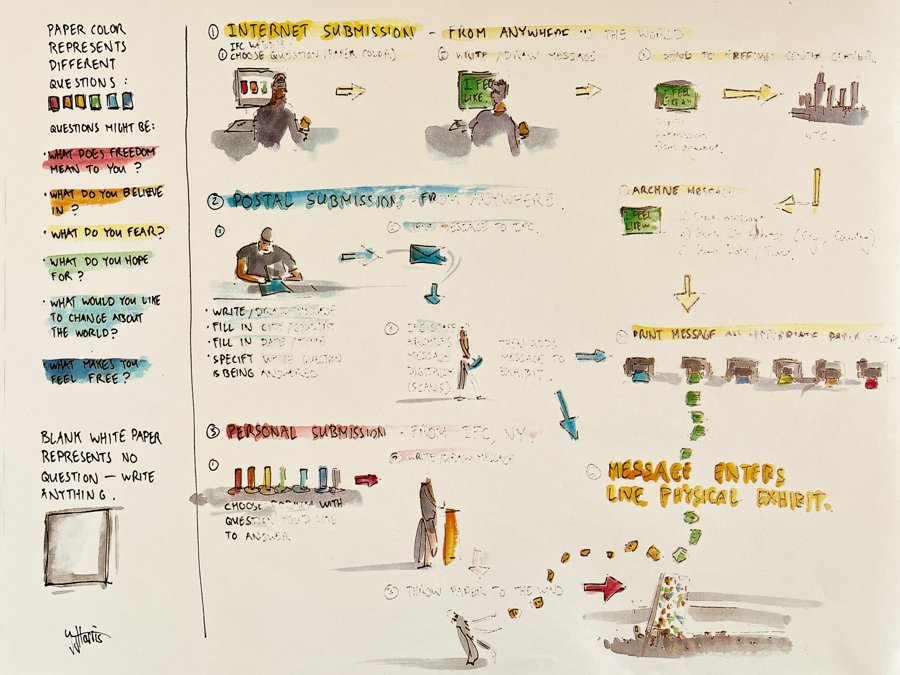 PAPER COLOR
REPRESENTS
DIFFERENT
QUESTIONS :
QUESTIONS MIGHT BE:
• WHAT DOES FREEDOM
MEAN TO YOU ?
• WHAT DO YOU BELIEVE
IN ?
• WHAT DO YOU FEAR?
• WHAT DO YOU HOPE
FOR ?
• WHAT WOULD YOU LIKE
TO CHANGE ABOUT
THE WORLD?
WHAT MAKES YOU
FEEL FREE ?
BLANK WHITE PAPER
REPRESENTS NO
QUESTION — WRITE
ANYTHING.
1 INTERNET SUBMISSION - FROM ANYWHERE IN THE WORLD
1 CHOOSE QUESTION (PAPER COLOR)
2 WRITE/DRAW MESSAGE
I FEEL
LIKE
I FEEL
LIKE A
NYC
ARCHIVE MESSAGE
I FEEL
LIKE
2 POSTAL SUBMISSION - FROM ANYWHERE.
1
2 SEND MESSAGE TO IFC.
• WRITE/DRAW MESSAGE
• FILL IN CITY/COUNTRY
• FILL IN DATE/TIME
• SPECIFY WHICH QUESTION
IS BEING ANSWERED
3 IFC STAFF
ARCHIVES
MESSAGE
DIGITALLY
(SCANS).
THEN ADDS
MESSAGE TO
EXHIBIT.
PRINT MESSAGE ON APPROPRIATE PAPER COLOR
3 PERSONAL SUBMISSION - FROM IFC, NY
1
CHOOSE PODIUM WITH
QUESTION YOU'D LIKE
TO ANSWER
2 WRITE/DRAW MESSAGE
3 THROW PAPER TO THE WIND
6 MESSAGE ENTERS
LIVE PHYSICAL EXHIBIT.